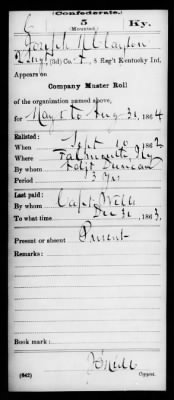 (Confederate.)
5
(Mounted.)
Ky.
Joseph N Clayton
(3d) Co. , 5 Reg't Kentucky Inf.
Appears on
Company Muster Roll
of the organization named above,
for May 1 to Aug 31, 1864
Enlisted:
When Sept 10, 1862
Where Falmouth, Ky
By whom Duncan
Period 3 yrs
Last paid:
By whom Capt Wells
To what time Dec 31, 1863.
Present or absent Present
Remarks:
Book mark:
(642)
Copyist.